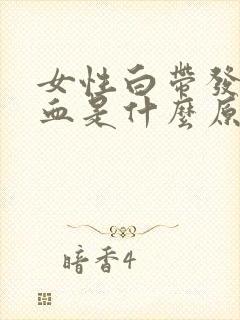 女性白帶發
血是什麼原
暗香4